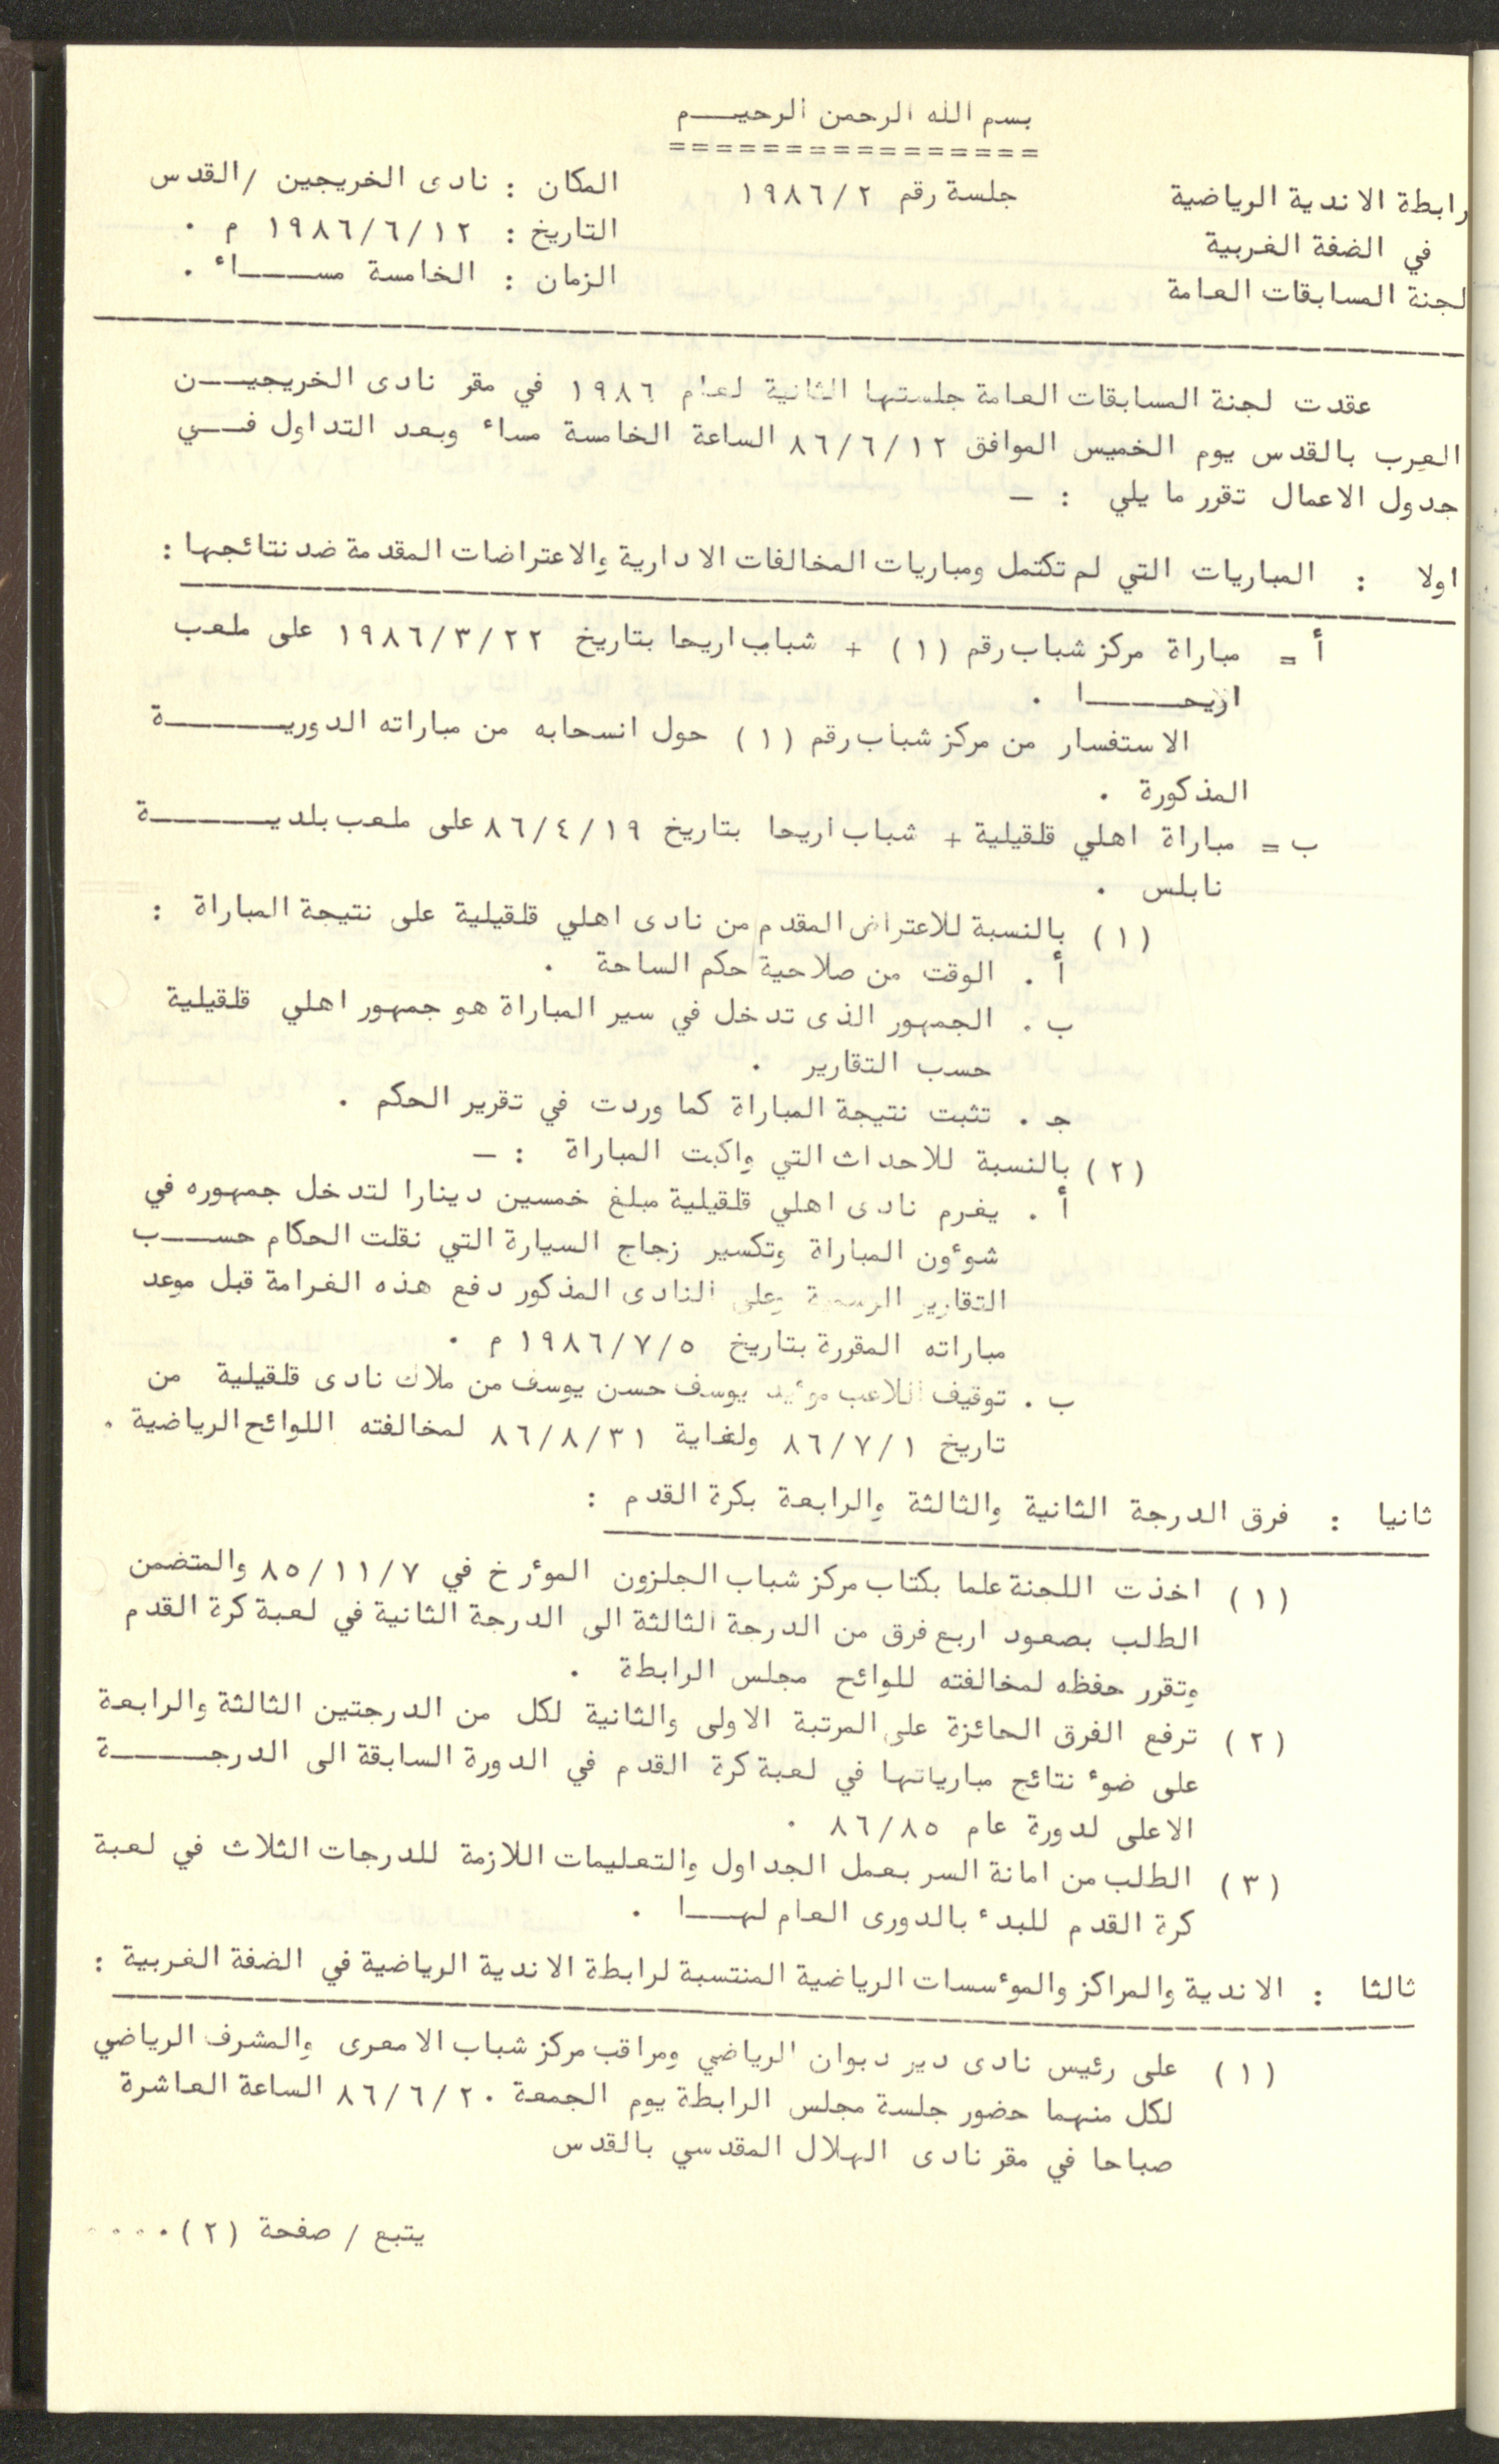 بسم الله الرحمن الرحيـــم
================
رابطة الاندية الرياضية
في الضفة الغربية
لجنة المسابقات العامة
جلسة رقم ١٩٨٦/٢
المكان : نادى الخريجين /القدس
التاريخ : ١٩٨٦/٦/١٢ م .
الزمان : الخامسة مســـاء .
عقدت لجنة المسابقات العامة جلستها الثانية لعام ١٩٨٦ في مقر نادى الخريجيـــن
العرب بالقدس يوم الخميس الموافق ٨٦/٦/١٢ الساعة الخامسة مساء وبعد التداول فـــي
جدول الاعمال تقرر ما يلي : ــ
اولا : المباريات التي لم تكتمل ومباريات المخالفات الادارية والاعتراضات المقدمة ضد نتائجها :
أ = مباراة مركز شباب رقم (١) + شباب اريحا بتاريخ ١٩٨٦/٣/٢٢ على ملعب
اريحـــــا .
الاستفسار من مركز شباب رقم (١) حول انسحابه من مباراته الدوريـــــة
المذكورة .
ب = مباراة اهلي قلقيلية + شباب اريحا بتاريخ ٨٦/٤/١٩ على ملعب بلديـــــة
نابلس .
(١) بالنسبة للاعتراض المقدم من نادى اهلي قلقيلية على نتيجة المباراة :
أ . الوقت من صلاحية حكم الساحة .
ب . الجمهور الذى تدخل في سير المباراة هو جمهور اهلي قلقيلية
حسب التقارير .
جـ . تثبت نتيجة المباراة كما وردت في تقرير الحكم .
(٢) بالنسبة للاحداث التي واكبت المباراة : ــ
أ . يغرم نادى اهلي قلقيلية مبلغ خمسين دينارا لتدخل جمهوره في
شوءون المباراة وتكسير زجاج السيارة التي نقلت الحكام حســـب
التقارير الرسمية وعلى النادى المذكور دفع هذه الغرامة قبل موعد
مباراته المقررة بتاريخ ١٩٨٦/٧/٥ م .
ب . توقيف اللاعب موءيد يوسف حسن يوسف من ملاك نادى قلقيلية من
تاريخ ٨٦/٧/١ ولغاية ٨٦/٨/٣١ لمخالفته اللوائح الرياضية .
ثانيا : فرق الدرجة الثانية والثالثة والرابعة بكرة القدم :
(١) اخذت اللجنة علما بكتاب مركز شباب الجلزون الموءرخ في ٨٥/١١/٧ والمتضمن
الطلب بصعود اربع فرق من الدرجة الثالثة الى الدرجة الثانية في لعبة كرة القدم
وتقرر حفظه لمخالفته للوائح مجلس الرابطة .
(٢) ترفع الفرق الحائزة على المرتبة الاولى والثانية لكل من الدرجتين الثالثة والرابعة
على ضوء نتائج مبارياتها في لعبة كرة القدم في الدورة السابقة الى الدرجـــــة
الاعلى لدورة عام ٨٦/٨٥ .
(٣) الطلب من امانة السر بعمل الجداول والتعليمات اللازمة للدرجات الثلاث في لعبة
كرة القدم للبدء بالدورى العام لهـــا .
ثالثا : الاندية والمراكز والموءسسات الرياضية المنتسبة لرابطة الاندية الرياضية في الضفة الغربية :
(١) على رئيس نادى دير دبوان الرياضي ومراقب مركز شباب الامعرى والمشرف الرياضي
لكل منهما حضور جلسة مجلس الرابطة يوم الجمعة ٨٦/٦/٢٠ الساعة العاشرة
صباحا في مقر نادى الهلال المقدسي بالقدس
يتبع / صفحة (٢) ....